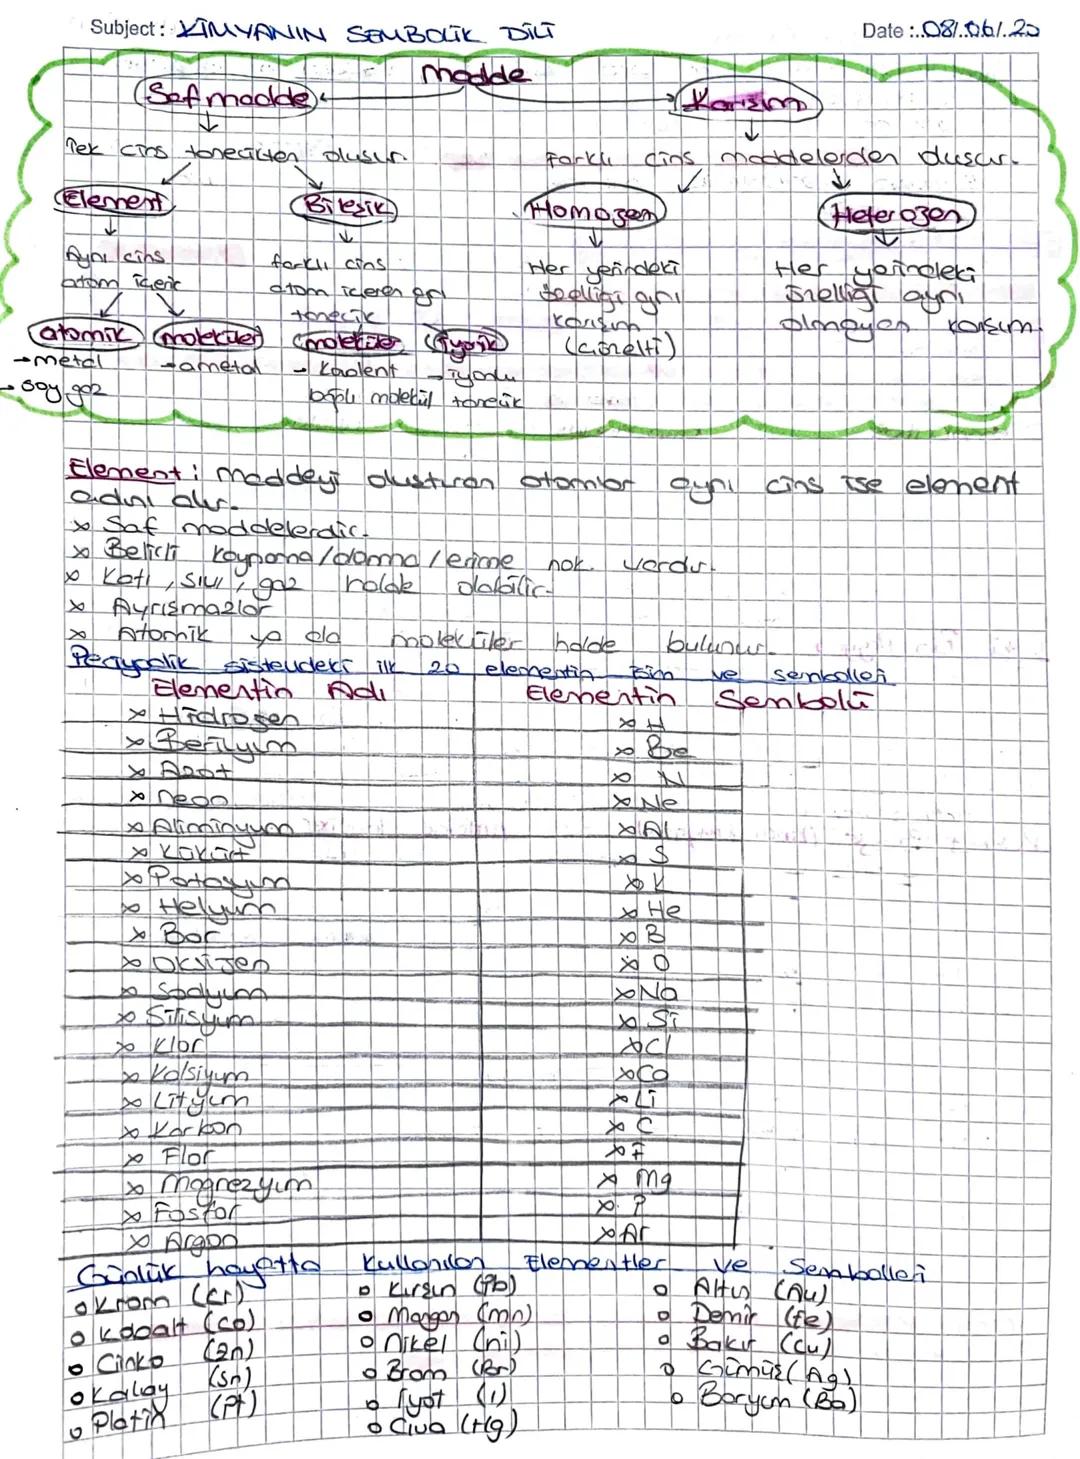 Subject: KİMYANIN SEMBOLİK DİLİ Date: 08/.06/.20
madde
Saf madde Karışım
Tek cins tanecikten oluşur. Farklı cins maddelerden oluşur.
Element Bileşik Homojen Heterojen
Aynı cins farklı cins Her yerindeki Her yerindeki
atom içerir atom içeren ayrı özelliği aynı özelliği aynı
tanecik karışım olmayan karışım.
atomik moleküler moleküler iyonik (çözelti)
→metal →ametal - Kovalent - iyonlu
→ soy gaz bağlı molekül tanecik
Element: Maddeyi oluşturan atomlar aynı cins ise element
adını alır.
x Saf maddelerdir.
x Belirli kaynama/donma/erime nok. vardır.
x Katı, sıvı, gaz halde olabilir.
x Ayrışmazlar
x Atomik ya da moleküler halde bulunur.
Periyodik sistemdeki ilk 20 elementin isim ve sembolleri
Elementin Adı Elementin Sembolü
x Hidrojen x H
x Berilyum x Be
x Azot x N
x neon x Ne
x Aliminyum x Al
x Kükürt x S
x Potasyum x K
x Helyum x He
x Bor x B
x Oksijen x O
x Sodyum x Na
x Silisyum x Si
x Klor x Cl
x Kalsiyum x Ca
x Lityum x Li
x Karbon x C
x Flor x F
x Magnezyum x Mg
x Fosfor x P
x Argon x Ar
Günlük hayatta Kullanılan Elementler ve Sembolleri
o Krom (Cr) o Kurşun (Pb) o Altın (Au)
o Kobalt (Co) o Mangan (mn) o Demir (fe)
o Çinko (Zn) o Nikel (ni) o Bakır (Cu)
o Kalay (Sn) o Brom (Br) o Gümüş (Ag)
o Platin (Pt) o İyot (I) o Baryum (Ba)
o Civa (Hg)